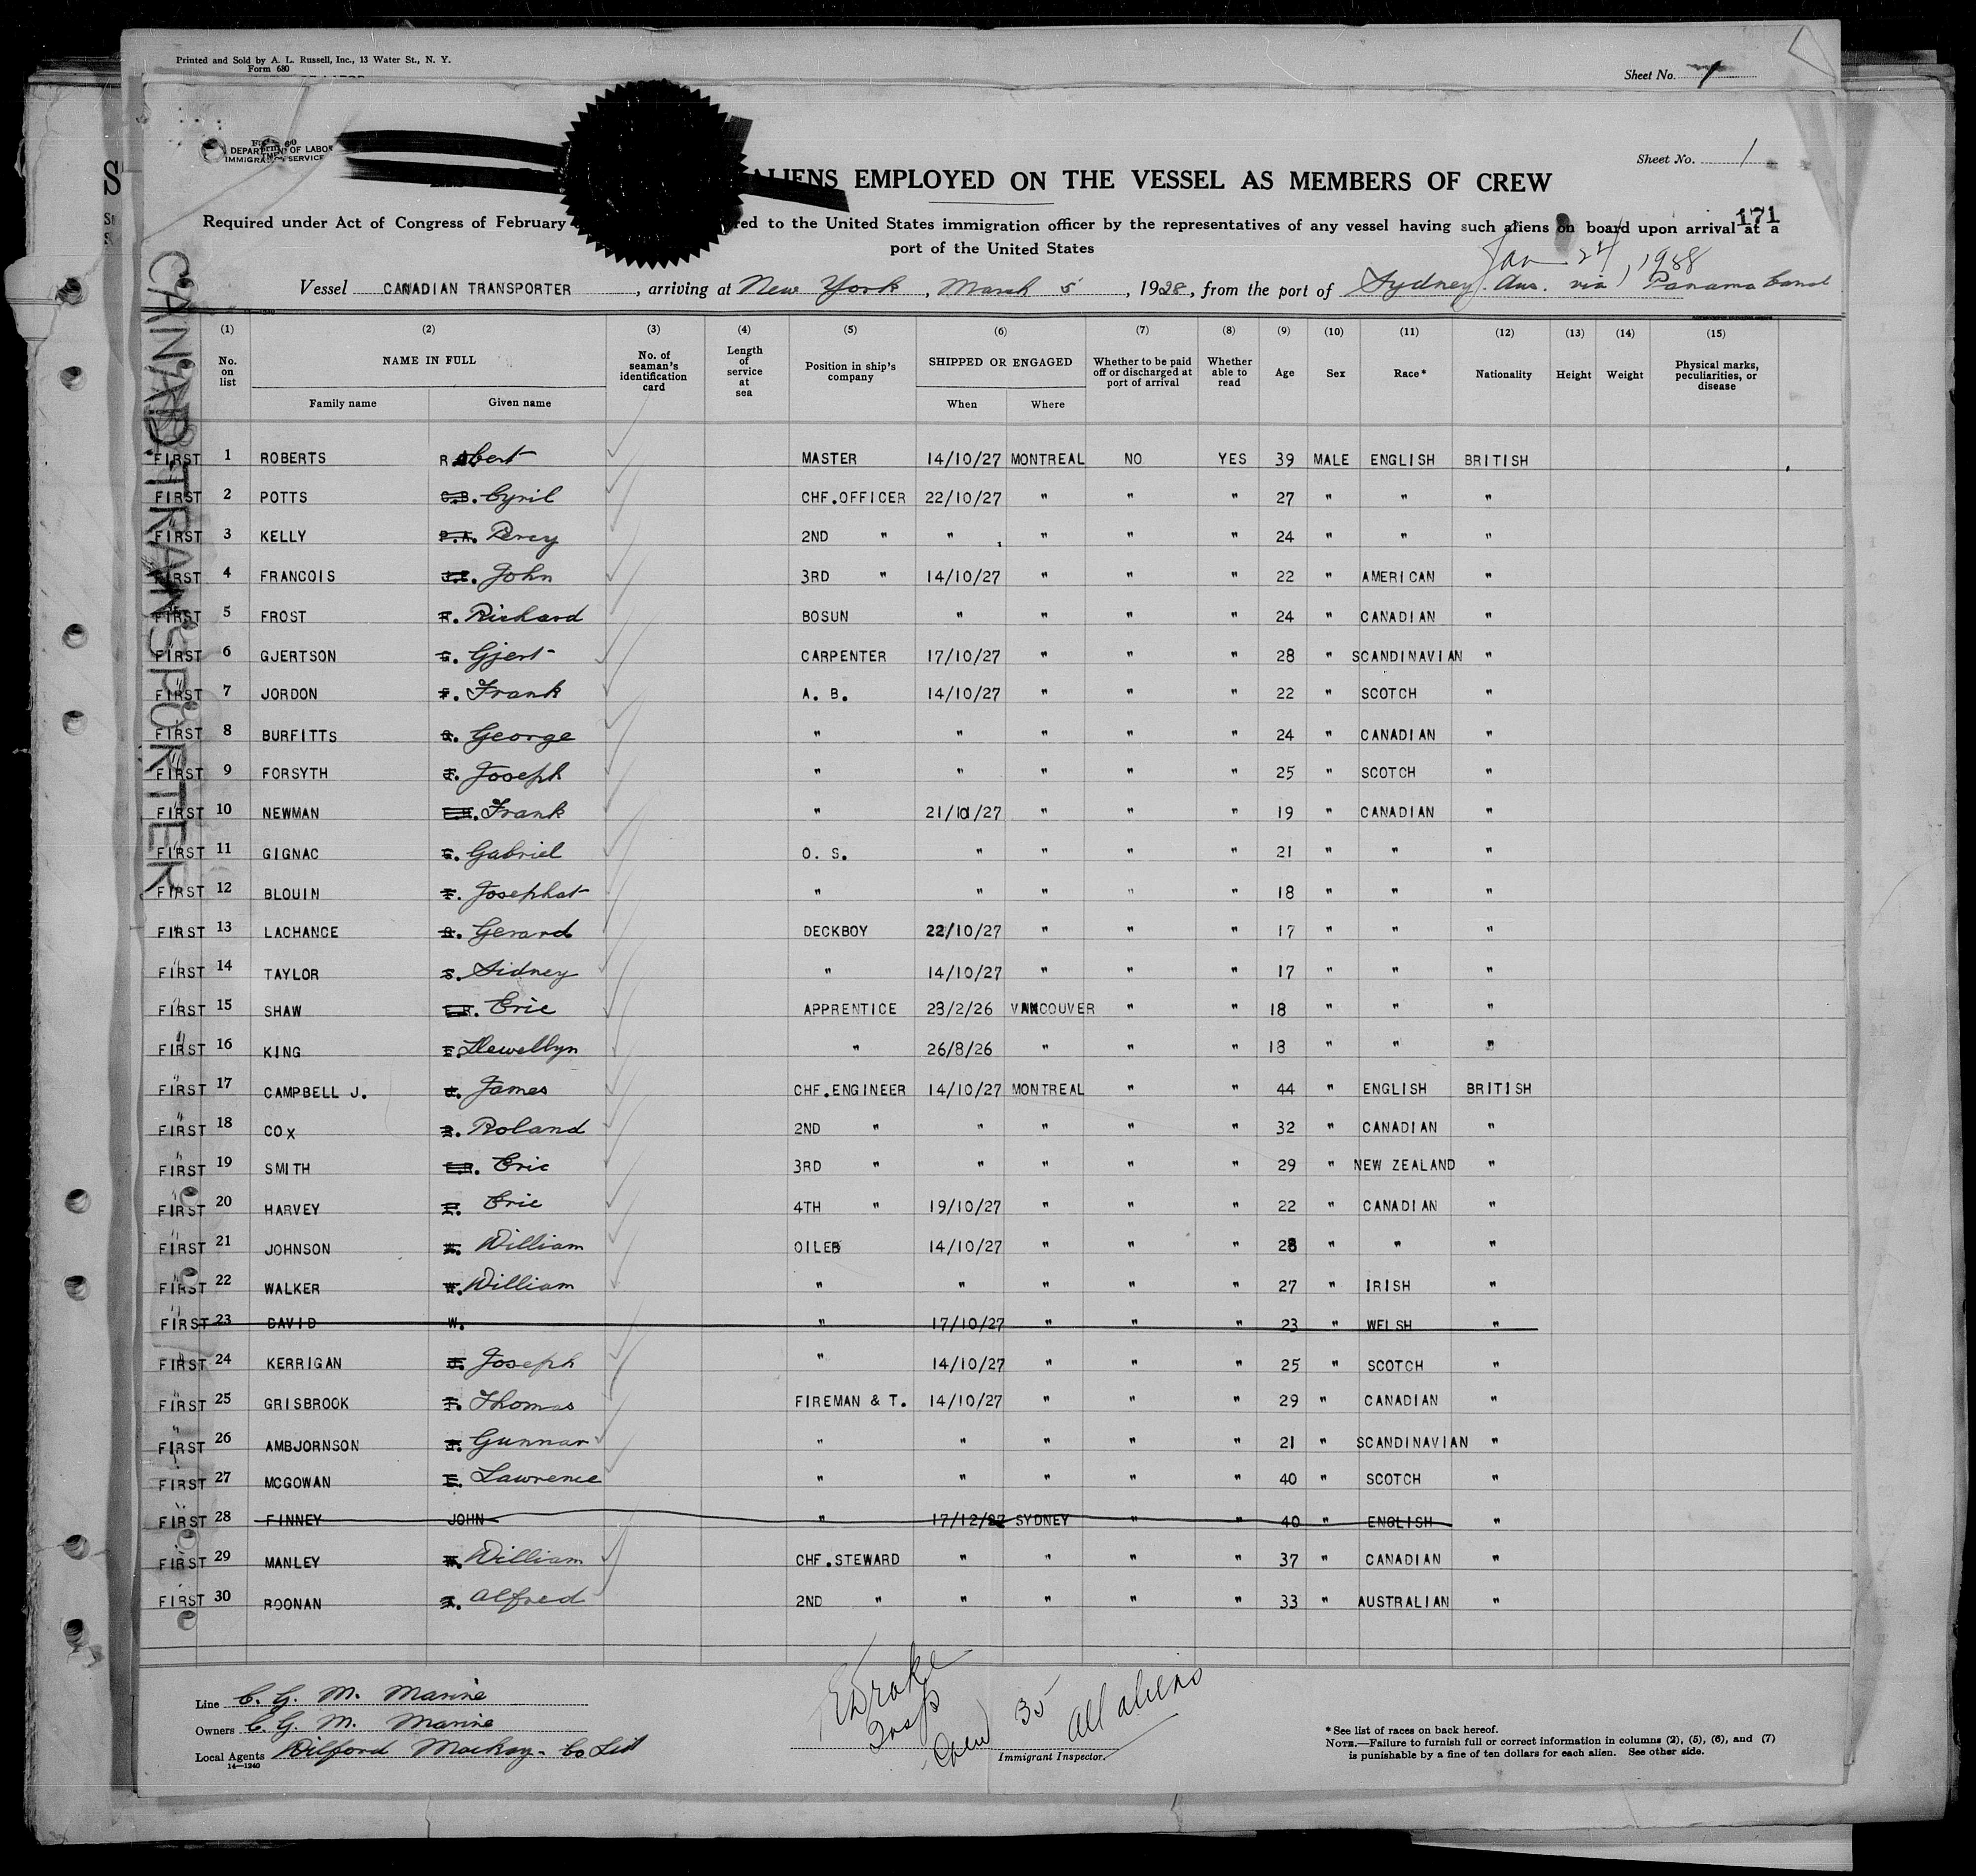 Printed and Sold by A. L. Russell, Inc., 13 Water St., N. Y.
Form 680
Sheet No. 1
DEPARTMENT OF LABOR
IMMIGRATION SERVICE
Sheet No. 1
ALIENS EMPLOYED ON THE VESSEL AS MEMBERS OF CREW
171
Required under Act of Congress of February red to the United States immigration officer by the representatives of any vessel having such aliens on board upon arrival at a
port of the United States
Jan 24, 1928
Vessel CANADIAN TRANSPORTER, arriving at New York, March 5, 1928, from the port of Sydney Aus. via Panama Canal
CANAD. TRANSPORTER
(1) (2) (3) (4) (5) (6) (7) (8) (9) (10) (11) (12) (13) (14) (15)
No. on list NAME IN FULL No. of seaman's identification card Length of service at sea Position in ship's company SHIPPED OR ENGAGED Whether to be paid off or discharged at port of arrival Whether able to read Age Sex Race* Nationality Height Weight Physical marks, peculiarities, or disease
Family name Given name When Where
FIRST 1 ROBERTS Robert MASTER 14/10/27 MONTREAL NO YES 39 MALE ENGLISH BRITISH
FIRST 2 POTTS C.B. Cyril CHF.OFFICER 22/10/27 " " " 27 " " "
FIRST 3 KELLY P.A. Percy 2ND " " " " " 24 " " "
FIRST 4 FRANCOIS John 3RD " 14/10/27 " " " 22 " AMERICAN "
FIRST 5 FROST R. Richard BOSUN " " " " 24 " CANADIAN "
FIRST 6 GJERTSON G. Gjert CARPENTER 17/10/27 " " " 28 " SCANDINAVIAN "
FIRST 7 JORDON F. Frank A. B. 14/10/27 " " " 22 " SCOTCH "
FIRST 8 BURFITTS G. George " " " " " 24 " CANADIAN "
FIRST 9 FORSYTH J. Joseph " " " " " 25 " SCOTCH "
FIRST 10 NEWMAN Frank " 21/10/27 " " " 19 " CANADIAN "
FIRST 11 GIGNAC G. Gabriel O. S. " " " " 21 " " "
FIRST 12 BLOUIN Josephat " " " " " 18 " " "
FIRST 13 LACHANCE G. Gerard DECKBOY 22/10/27 " " " 17 " " "
FIRST 14 TAYLOR S. Sidney " 14/10/27 " " " 17 " " "
FIRST 15 SHAW Eric APPRENTICE 23/2/26 VANCOUVER " " 18 " " "
FIRST 16 KING Llewellyn " 26/8/26 " " " 18 " " "
FIRST 17 CAMPBELL J. J. James CHF.ENGINEER 14/10/27 MONTREAL " " 44 " ENGLISH BRITISH
FIRST 18 COX R. Roland 2ND " " " " " 32 " CANADIAN "
FIRST 19 SMITH E.R. Eric 3RD " " " " " 29 " NEW ZEALAND "
FIRST 20 HARVEY E. Eric 4TH " 19/10/27 " " " 22 " CANADIAN "
FIRST 21 JOHNSON William OILER 14/10/27 " " " 28 " " "
FIRST 22 WALKER W. William " " " " " 27 " IRISH "
FIRST 23 DAVID W. " 17/10/27 " " " 23 " WELSH "
FIRST 24 KERRIGAN J. Joseph " 14/10/27 " " " 25 " SCOTCH "
FIRST 25 GRISBROOK T. Thomas FIREMAN & T. 14/10/27 " " " 29 " CANADIAN "
FIRST 26 AMBJORNSON Gunnar " " " " " 21 " SCANDINAVIAN "
FIRST 27 MCGOWAN Lawrence " " " " " 40 " SCOTCH "
FIRST 28 FINNEY JOHN " 17/12/27 SYDNEY " " 40 " ENGLISH "
FIRST 29 MANLEY W. William CHF.STEWARD " " " " 37 " CANADIAN "
FIRST 30 ROONAN Alfred 2ND " " " " " 33 " AUSTRALIAN "
Line C. G. M. Marine
Owners C. G. M. Marine
Local Agents Wilford Mackay Co Ltd
14—1240
E Drake
Insp
Crew 35 All aliens
Immigrant Inspector.
*See list of races on back hereof.
NOTE.—Failure to furnish full or correct information in columns (2), (5), (6), and (7)
is punishable by a fine of ten dollars for each alien. See other side.